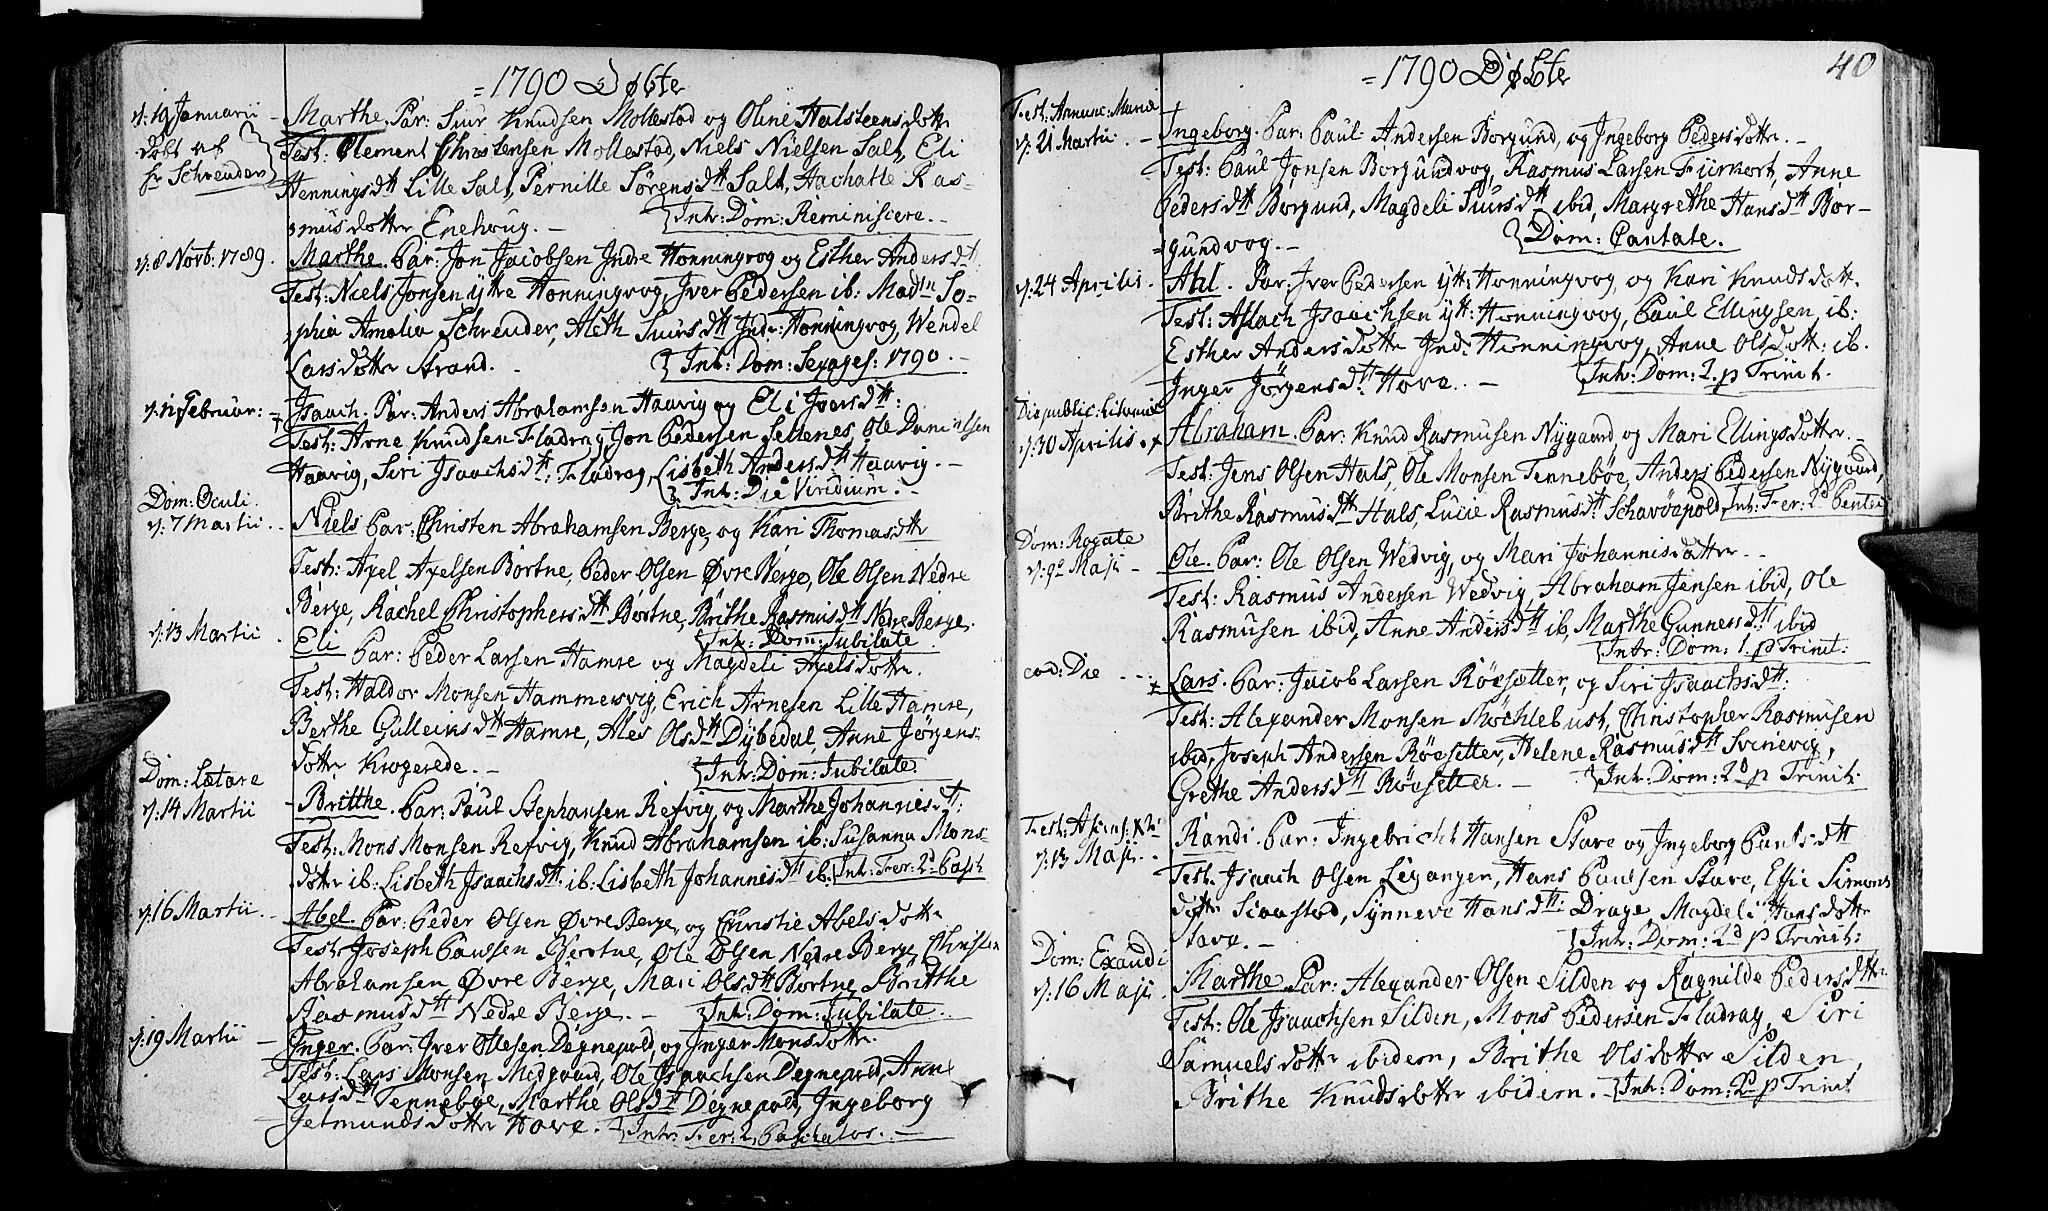 =1790 Døbte
d: 19 Januarii
døbt af
hr Schreuder
Marthe. Par: Siur Knudsen Mollestad og Oline Halsteensdotter
Test: Clement Christensen Mollestad, Niels Nielsen Salt, Eli
Henningsdtt Lille Salt, Pernille Sörensdtt Salt, Hachatle Ras-
musdotter Enehoug. - Intr: Dom: Reminiscere.
d: 8 Novb: 1789.
Marthe. Par: Jon Jacobsen Indre Honningvog og Esther Andersdtt:
Test: Niels Jonsen ytre Honningvog, Iver Pedersen ib: Madm So-
phia Amalia Schreuder, Aleth Siursdtt Indr: Honningvog, Wendel
Larsdotter Strand. - Intr: Dom: Sexages: 1790.
d: 11 Februar:
Isaach. Par: Anders Abrahamsen Haavig og Eli Joersdtt:
Test: Arne Knudsen Fladrag, Jon Pedersen Sellenes, Ole Danielsen
Haavig, Siri Isaachsdtt: Fladrag, Lisbeth Andersdtt Haavig. -
Intr: Die Viridium. -
Dom: Oculi.
d: 7 Martii
Niels Par: Christen Abrahamsen Berge, og Kari Thomasdtr
Test: Axel Axelsen Børtne, Peder Olsen Øvre Berge, Ole Olsen Nedre
Berge, Rachel Christophersdtt Børtne, Brithe Rasmusdtt Nedre Berge.
Intr: Dom: Jubilate
d: 13 Martii
Eli Par: Peder Larsen Hamre og Magdeli Axelsdotter.
Test: Haldor Monsen Hammersvig, Erich Arnesen Lille Hamre,
Berthe Gullecksdtt Hamre, Ales Olsdtt Dybedal, Anne Jørgens-
dotter Krogerede. - Intr: Dom: Jubilate.
Dom: Lætare
d: 14 Martii
Britthe. Par: Paul Stephansen Refvig, og Marthe Johannisdtt:
Test: Mons Monsen Refvig, Knud Abrahamsen ib: Susanna Mons-
dotter ib: Lisbeth Isaachsdtt: ib: Lisbeth Johannisdtt ib: Intr: Fer: 2d Pasch
d: 16 Martii
Abel. Par: Peder Olsen Øvre Berge, og Christie Abelsdotter
Test: Joseph Paulsen Børtne, Ole Olsen Nedre Berge, Christen
Abrahamsen Øvre Berge, Mari Olsdtt Børtne, Britthe
Rasmusdtt Nedre Berge. - Intr: Dom: Jubilate.
d: 19 Martii
Inger. Par: Iver Ollesen Degnepold, og Inger Monsdotter.
Test: Lars Monsen Medgaard, Ole Isaachsen Degnepold, Anne
Larsdtt Tennebøe, Marthe Olsdtt Degnepold, Ingeborg
Jetmundsdotter Hove. - Intr: Fer: 2 Paschatos. -
=1790 Døbte
40
Fest: Annunc: Mariæ
d: 21 Martii.
Ingeborg. Par: Paul Andersen Borgund, og Ingeborg Pedersdotter. -
Test: Paul Jonsen Borgundvog, Rasmus Larsen Furkort, Anne
Pedersdtt Borgund, Magdeli Siursdtt ibid, Margrethe Hansdtt Bor-
gundvog. - Dom: Cantate.
d: 24 Aprilis.
Ahl. Par: Iver Pedersen ytt: Honningvog, og Kari Knudsdotter.
Test: Aslach Isaachsen ytt: Honningvog, Paul Ellingsen, ib:
Esther Andersdotter Ind: Honningvog, Anne Olsdott: ib.
Inger Jørgensdtt Hove. - Intr: Dom: 2. p Trinit.
Die public: Litanii
d: 30 Aprilis.
Abraham. Par: Knud Rasmusen Nygaard og Mari Ellingsdotter. -
Test: Jens Olsen Hals, Ole Monsen Tennebøe, Anders Pedersen Nygaard,
Brithe Rasmusdtt Hals, Lucie Rasmusdtt Schavøepold Intr: Fer: 2d Pentec
Dom: Rogate
d: 9de Maji -
Ole. Par: Ole Olsen Wedvig, og Mari Johannisdotter. -
Test: Rasmus Andersen Wedvig, Abraham Jensen ibid, Ole
Rasmusen ibid, Anne Andersdtt ib, Marthe Gunnersdtt ibid
Intr: Dom: 1. p Trinit:
eod: Die
Lars. Par: Jacob Larsen Röesetter, og Siri Isaachsdtt:
Test: Alexander Monsen Möchlebust, Christopher Rasmusen
ibid, Joseph Andersen Röesetter, Helene Rasmusdtt Svinevig,
Grethe Andersdtt Röesetter. - Intr: Dom: 2d p Trinit:
Fest: Ascens: Xti
d: 13 Maji
Randi. Par: Ingebricht Hansen Stave og Ingeborg Paulsdtt
Test. Isaach Olsen Leganger, Hans Paulsen Stave, Effie Simons
dotter Scaastad, Synneve Hansdtt: Drage, Magdeli Hansdotter
Stave. - Intr: Dom: 2d p Trinit:
Dom: Exaudi
d: 16 Maji.
Marthe. Par: Alexander Olsen Silden og Ragnilde Pedersdotter.
Test: Ole Isaachsen Silden, Mons Pedersen Fladrag, Siri
Samuelsdotter ibidem, Brithe Olsdotter Silden,
Brithe Knudsdotter ibidem. - Intr: Dom: 2d p Trinit